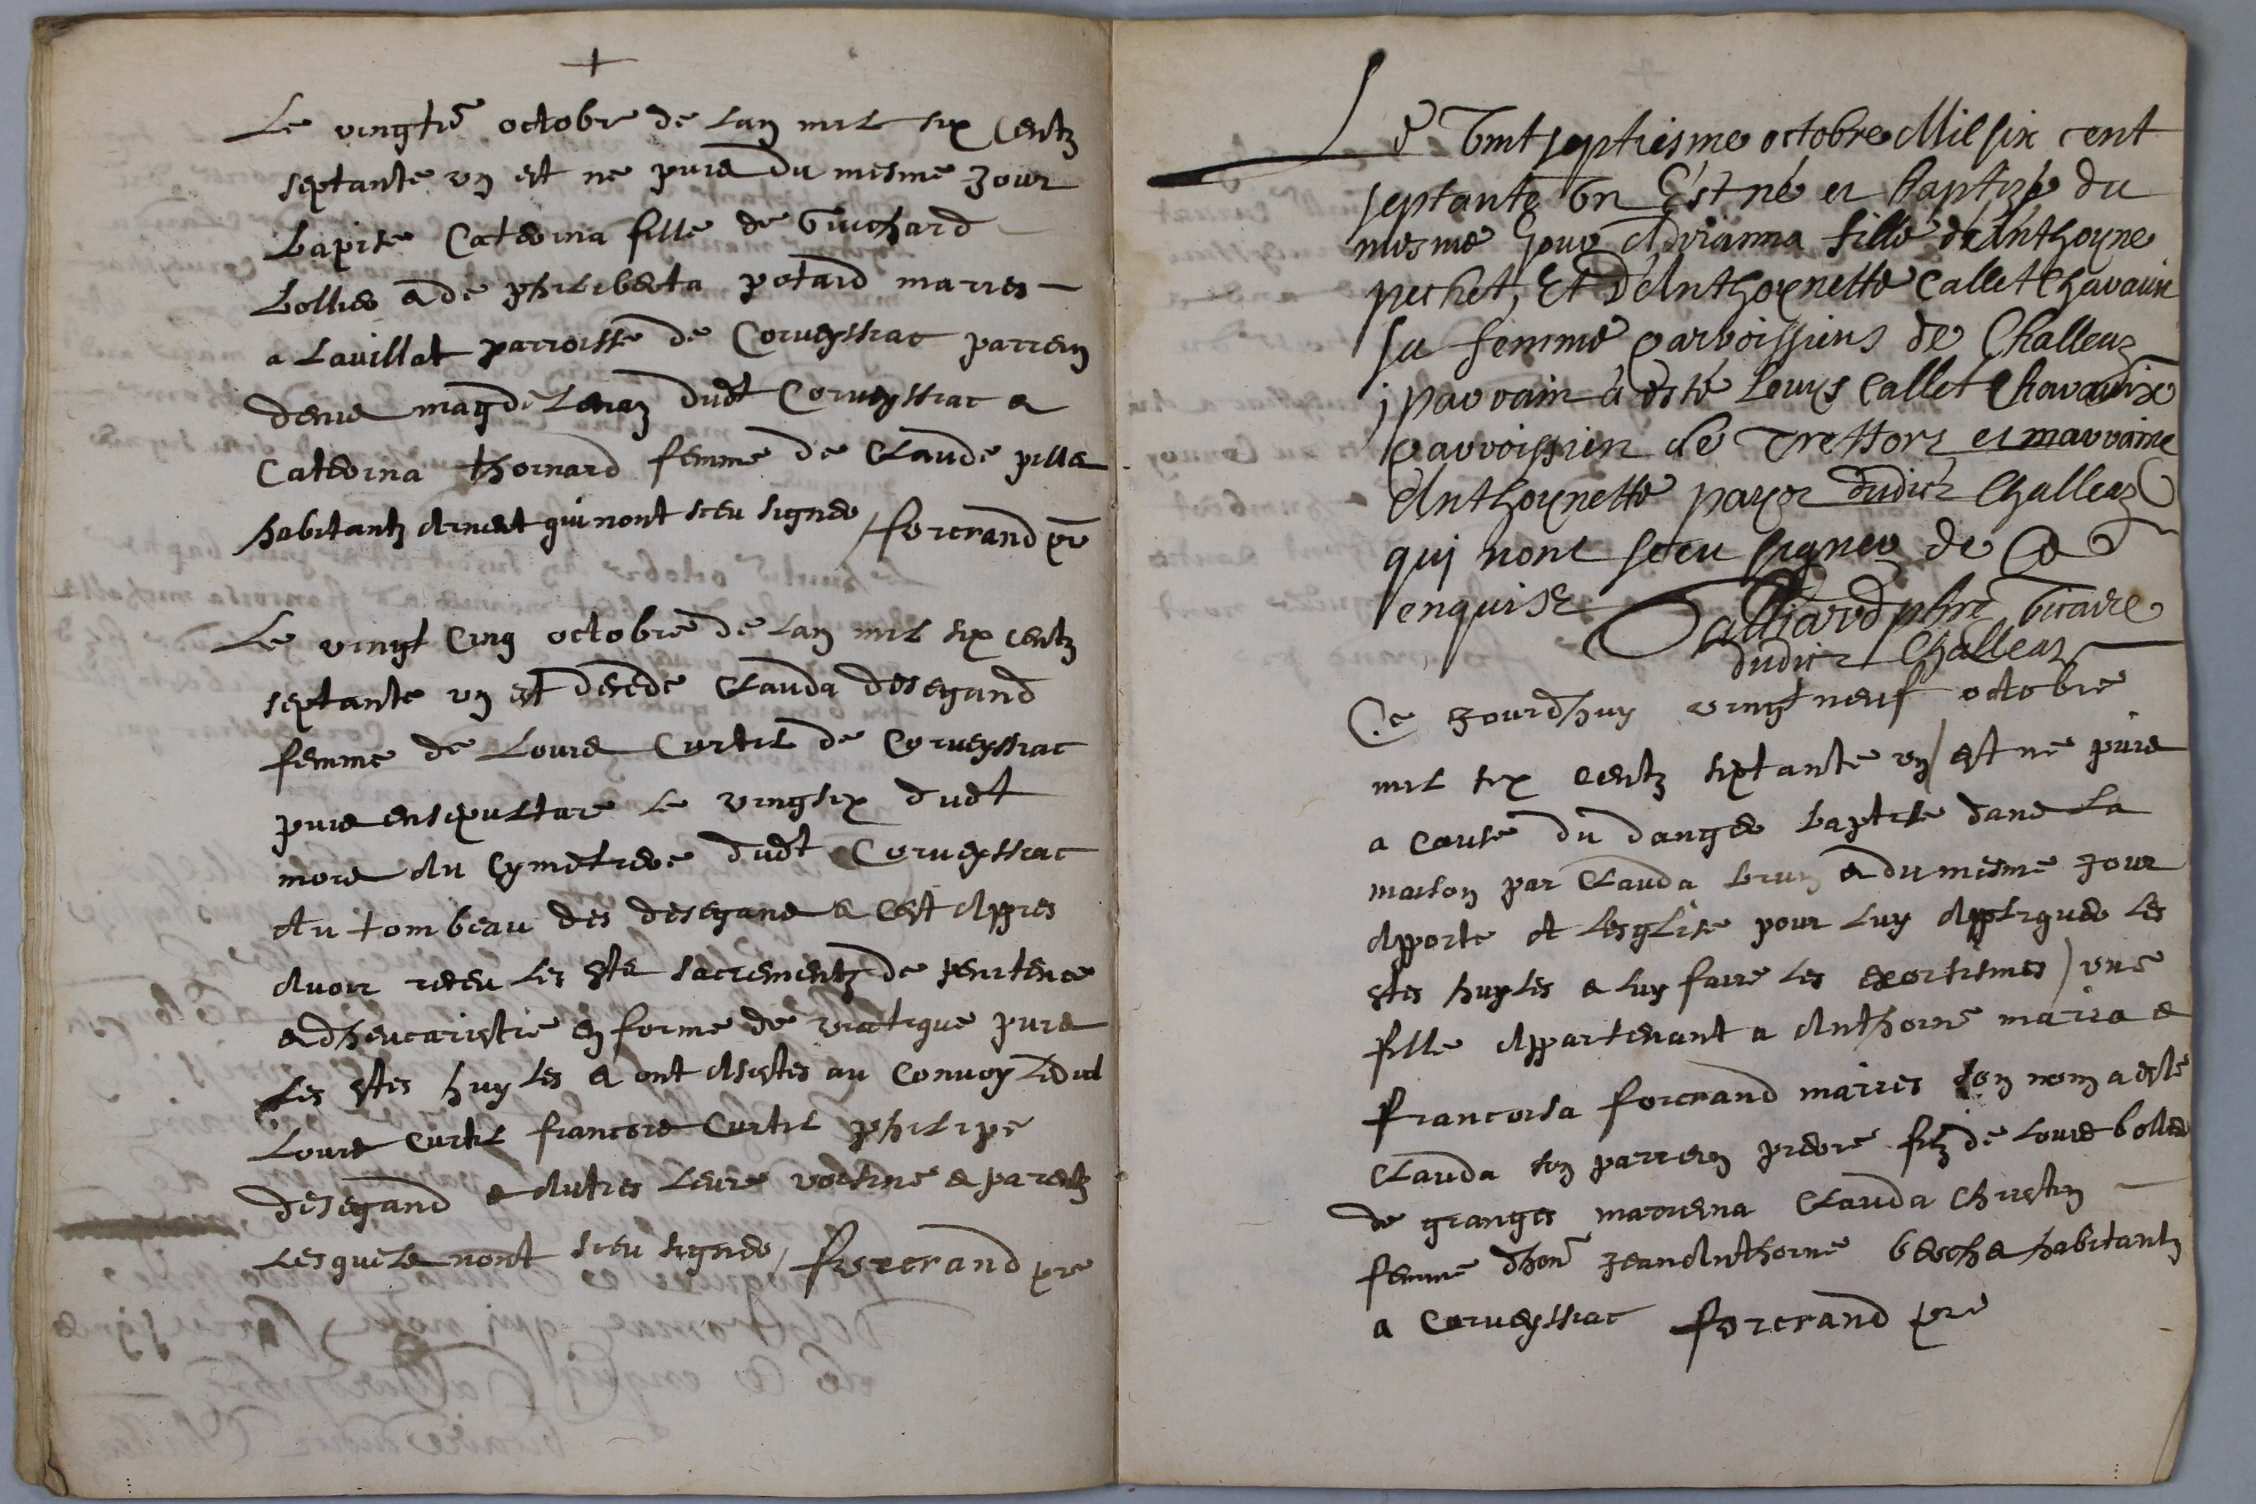 +
Le vingtie octobre de Lan mil six Centz
septante un est ne puis du mesme Jour
bapise Caterina fille de Guichard
bollier & de philiberta potard maries
a Lavillat parroisse de Corveyssiac parrein
denis magdelenaz dudt Corveyssiac &
Caterina thoinard femme de Claude piller
habitantz Amect qui nont sceu signer / forcrand pre
Le vingt Cinq octobre de Lan mil six centz
septante un est decede Clauda desegand
femme de Louis Curtil de Corveyssiac
puis ensepulture le vingsix dudt
mois au Cymetiere dudt Corveyssiac
Au tombeau des desegans & cest Appres
Avoir receu les sts sacrementz de penitence
& dheucaristie en forme de viatique puis
Les stes huyles & ont Asistes au Convoy Ledit
Louis Curtil francois Curtil philipe
desegand & Autres leurs voisins & parentz
Lesquels nont sceu signer / forcrand pre
Le Vint septiesme octobre Mil six cent
septante Un Est né et baptizé du
mesme Jour Adrianna fille d'Anthoyne
pechet, Et D'Anthoynette Callet Chavain
sa femme parroissiens de Challeaz
; parrain a esté Louys Callet Chavain
parroissien de Treffort et marraine
Anthoynette payor dudict Challeaz
qui nont sceu signer de ce
enquise Galliard pbre Vicaire
dudict Challeaz
Ce Jourdhuy vingt neuf octobre
mil six centz septante un / est ne puis
a cause du danger baptise dans La
maison par Clauda brun & du mesme Jour
Apporte A Lesglise pour luy Appliquer les
stes huyles & luy faire les exorcismes / une
fille Appartenant a Anthoine maria &
francoisa forcrand maries son nom a este
Clauda son parrein pierre filz de Louis bollier
de granges marrena Clauda Christin
femme dhon Jean Anthoine berche habitantz
a Corveyssiac forcrand pre